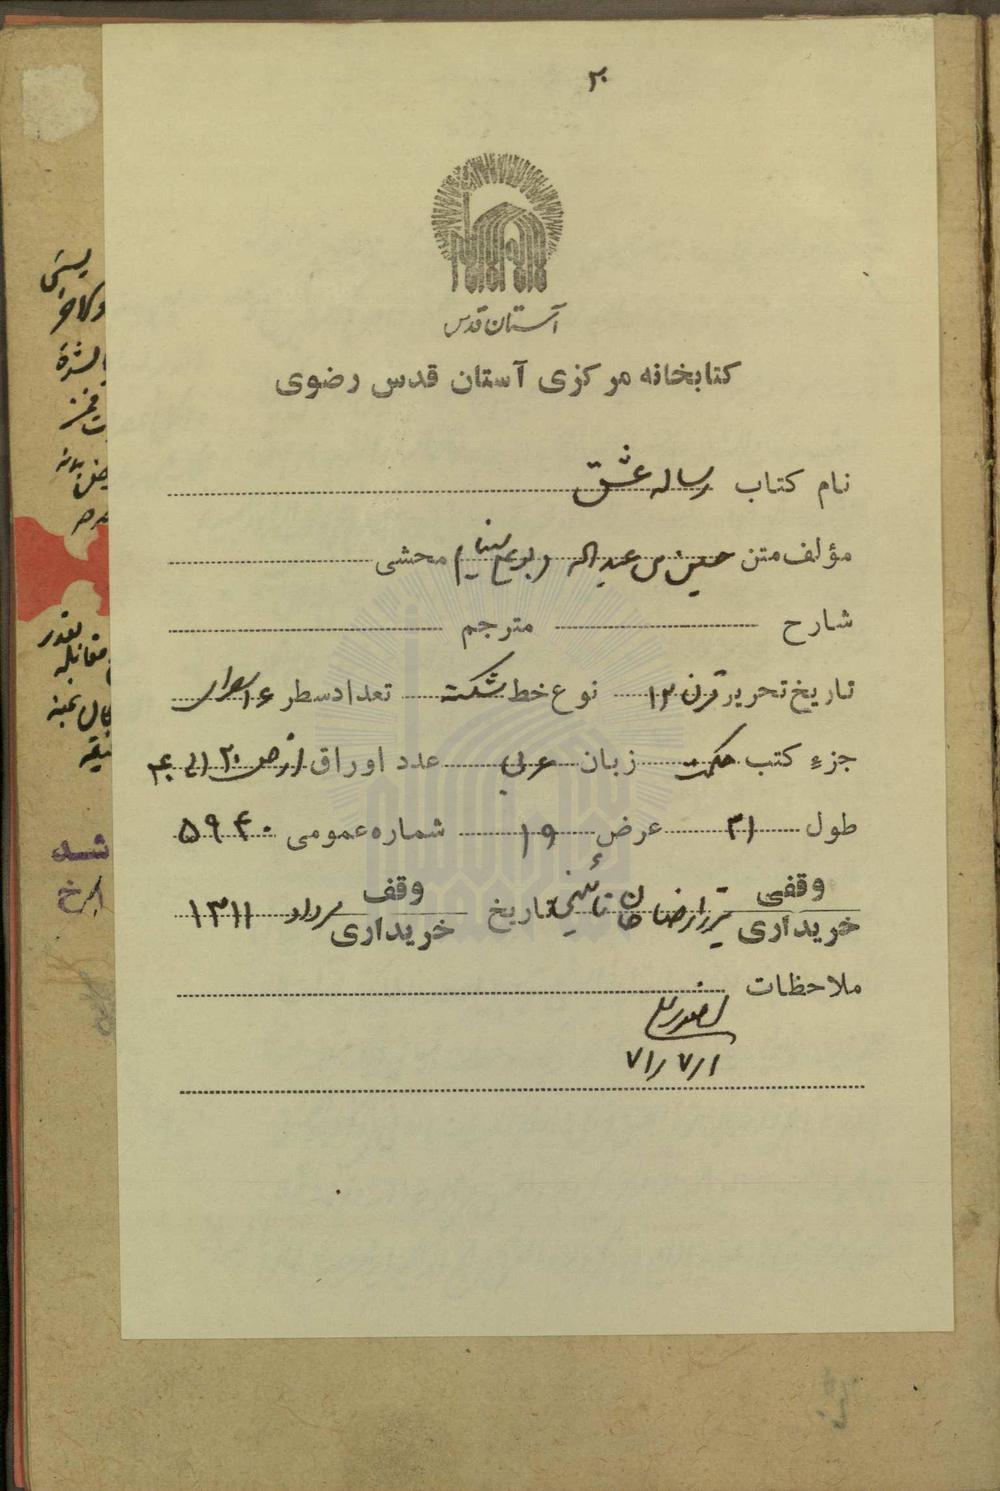 ۲۰
آستان قدس
کتابخانه مرکزی آستان قدس رضوی
نام کتاب رساله عشق
مؤلف متن حسین بن عبدالله (بوعلی سینا) محشی
شارح مترجم
تاریخ تحریر قرن ۱۲ نوع خط شکسته تعداد سطر ۱۶
جزء کتب حکمت زبان عربی عدد اوراق از ص ۲۰ الی
طول ۳۱ عرض ۱۹ شماره عمومی ۵۹۴۰
وقفی
خریداری میرزا رضا خان نائینی تاریخ وقف
خریداری مرداد ۱۳۱۱
ملاحظات
۷۱/۷/۱
شد